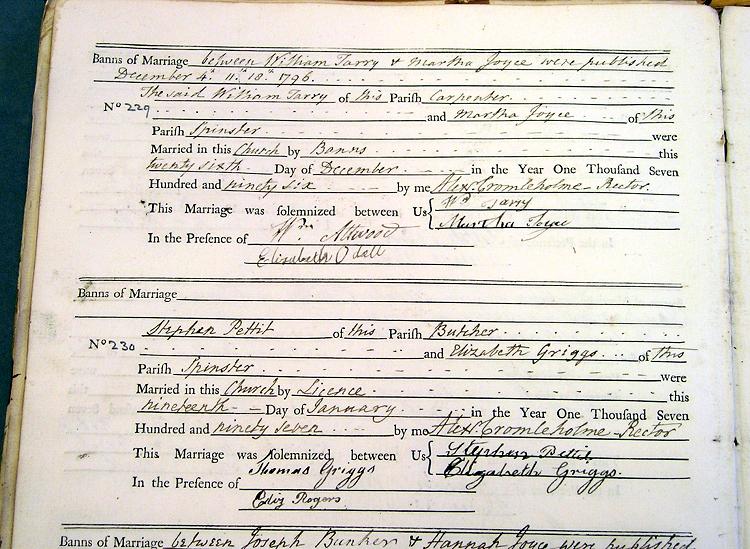 Banns of Marriage between William Tarry & Martha Joyce were published
December 4th 11th 18th 1796.
The said William Tarry of this Pariſh Carpenter
No 229 and Martha Joyce of this
Pariſh Spinster were
Married in this Church by Banns this
twenty sixth Day of December in the Year One Thouſand Seven
Hundred and ninety six by me Alexr. Cromleholme Rector.
This Marriage was ſolemnized between Us { Wm Tarry
Martha Joyce
In the Preſence of Wm Attwood
Elizabeth Odall
Banns of Marriage
Stephen Pettit of this Pariſh Butcher
No 230 and Elizabeth Griggs of this
Pariſh Spinster were
Married in this Church by Licence this
nineteenth Day of January in the Year One Thouſand Seven
Hundred and ninety seven by me Alexr. Cromleholme Rector
This Marriage was ſolemnized between Us { Stephen Pettit
Elizabeth Griggs.
In the Preſence of Thomas Griggs
Eliz Rogers
Banns of Marriage between Joseph Bunker & Hannah Joyce were published